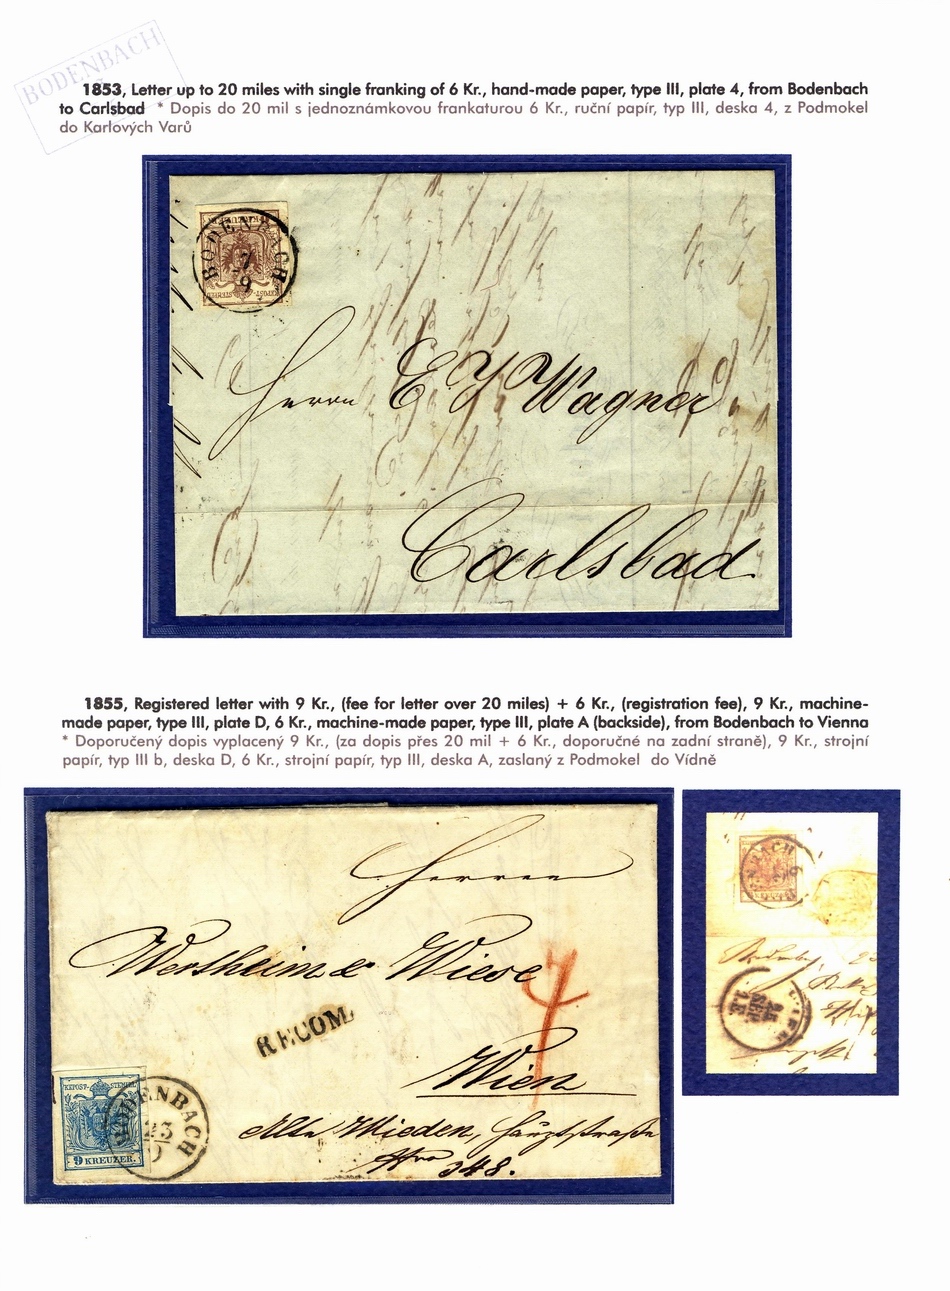 BODENBACH
1853, Letter up to 20 miles with single franking of 6 Kr., hand-made paper, type III, plate 4, from Bodenbach
to Carlsbad * Dopis do 20 mil s jednoznámkovou frankaturou 6 Kr., ruční papír, typ III, deska 4, z Podmokel
do Karlových Varů
BODENBACH
7
9
Herrn E. J. Wagner
Carlsbad
1855, Registered letter with 9 Kr., (fee for letter over 20 miles) + 6 Kr., (registration fee), 9 Kr., machine-
made paper, type III, plate D, 6 Kr., machine-made paper, type III, plate A (backside), from Bodenbach to Vienna
* Doporučený dopis vyplacený 9 Kr., (za dopis přes 20 mil + 6 Kr., doporučné na zadní straně), 9 Kr., strojní
papír, typ III b, deska D, 6 Kr., strojní papír, typ III, deska A, zaslaný z Podmokel do Vídně
Herren
Wertheim & Wiese
RECOM.
Wien
Alte Wieden, Hauptstraße
Nro 348.
KKPOST-STEMPEL
9 KREUZER.
BODENBACH
23
WIEN
24
SEP.